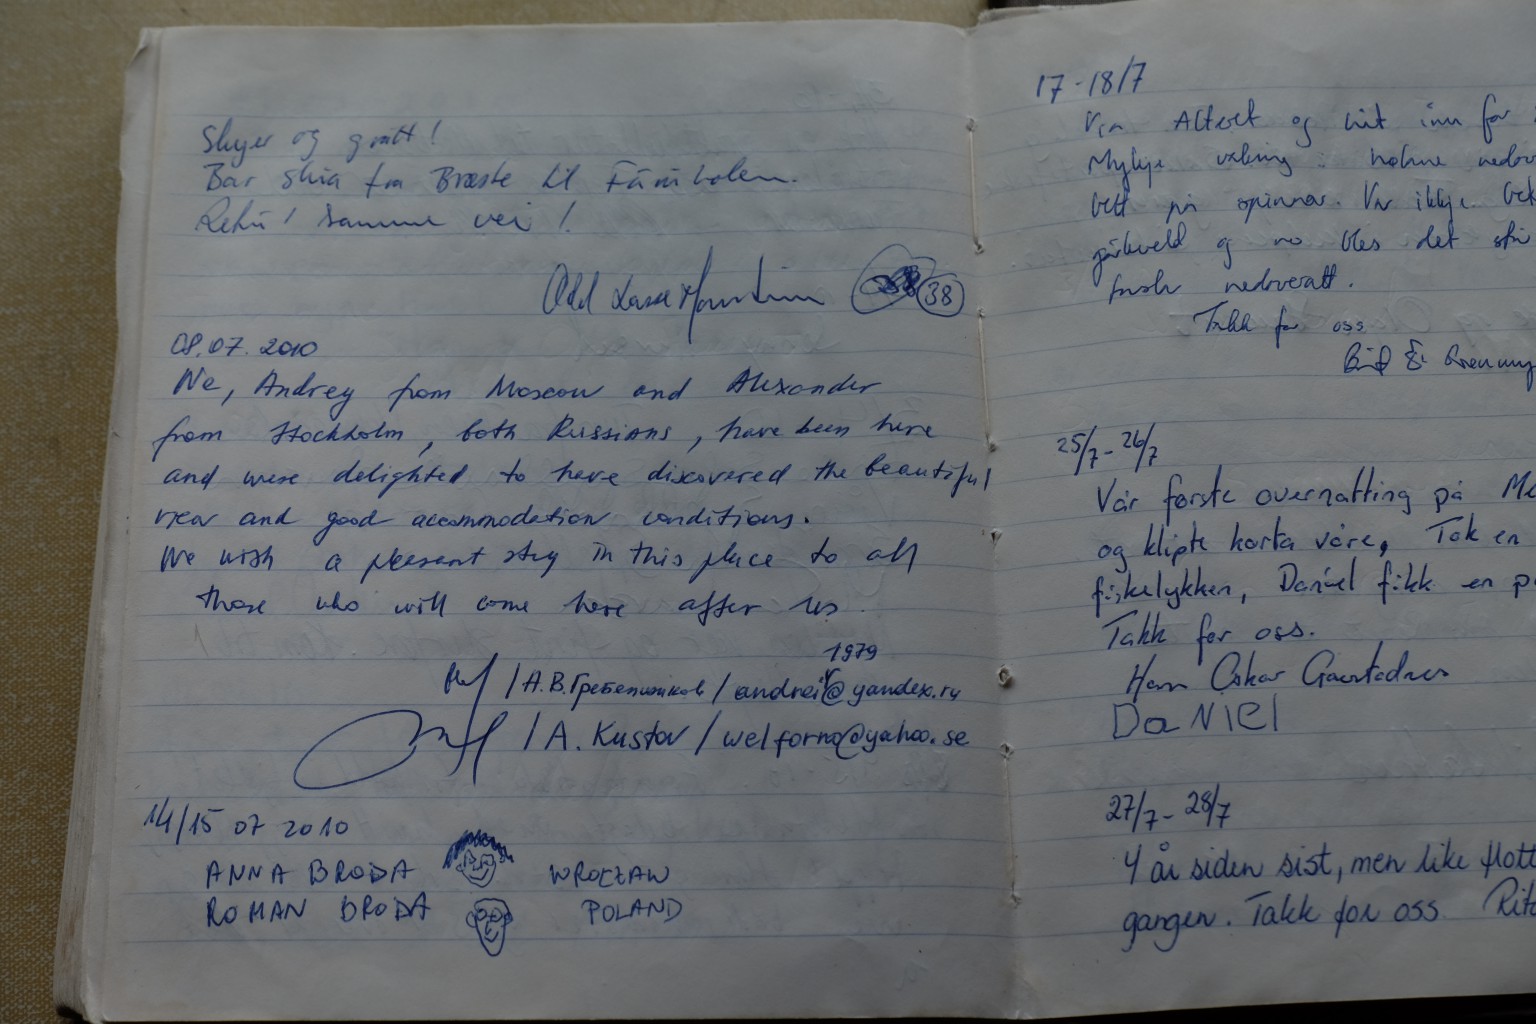 Skyer og grått!
Bar skia fra Bræste til
Retur samme vei!
Odd Lasse
38
08.07.2010
We, Andrey from Moscow and Alexander
from Stockholm, both Russians, have been here
and were delighted to have discovered the beautiful
view and good accommodation conditions.
We wish a pleasant stay in this place to all
those who will come here after us.
/ А.В.Гребенщиков / andrei1979@yandex.ru
/ A. Kustov / welforno@yahoo.se
14/15 07 2010
ANNA BRODA WROCŁAW
ROMAN BRODA POLAND
17-18/7
Via Alteret og hit inn for
Mykje
bett på spinnar. Var ikkje
og no bles det
fysh nedoveratt.
Takk for oss
25/7-26/7
Vår første overnatting på
og klipte korta våre, Tok en
fiskelykken, Daniel fikk en
Takk for oss.
Oskar
DaNIEl
27/7-28/7
4 år siden sist, men like flott
gangen. Takk for oss